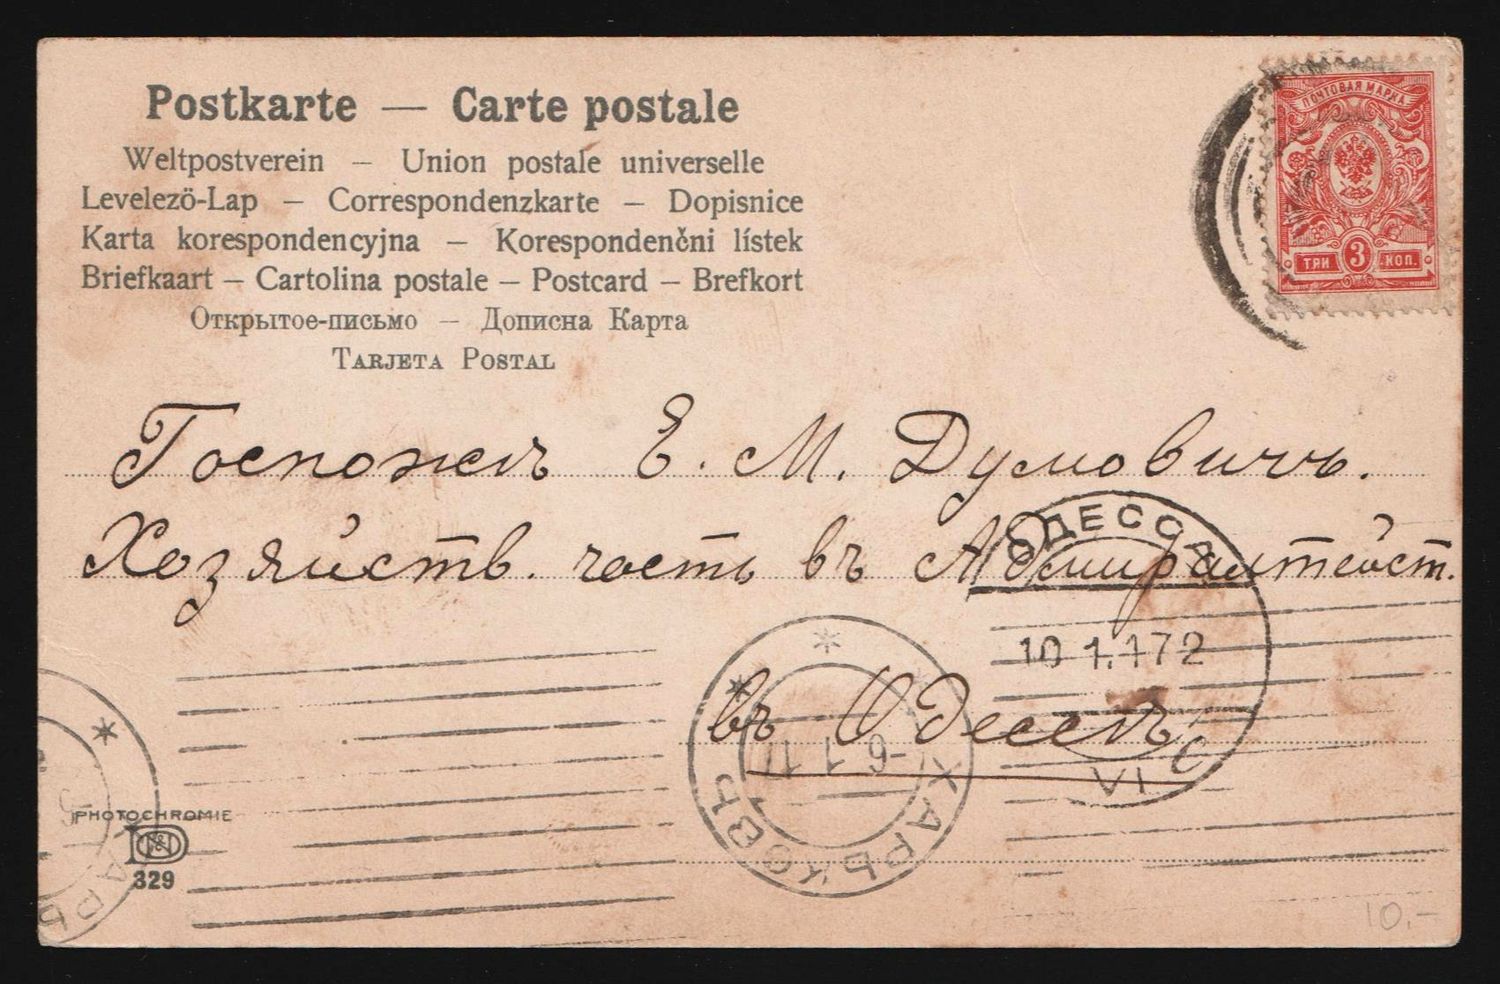 Postkarte — Carte postale
Weltpostverein – Union postale universelle
Levelező-Lap – Correspondenzkarte – Dopisnice
Karta korespondencyjna – Korespondenčni lístek
Briefkaart – Cartolina postale – Postcard – Brefkort
Открытое-письмо – Дописна Карта
Tarjeta Postal
ПОЧТОВАЯ МАРКА
ТРИ 3 КОП.
Госпожѣ Е. М. Думовичъ.
Хозяйств. часть въ Адмиралтейст.
въ Одессѣ
ОДЕССА
10 1.172
VI
ХАРЬКОВЪ
-6 1 11
ХАРЬ
PHOTOCHROMIE
329
10.-